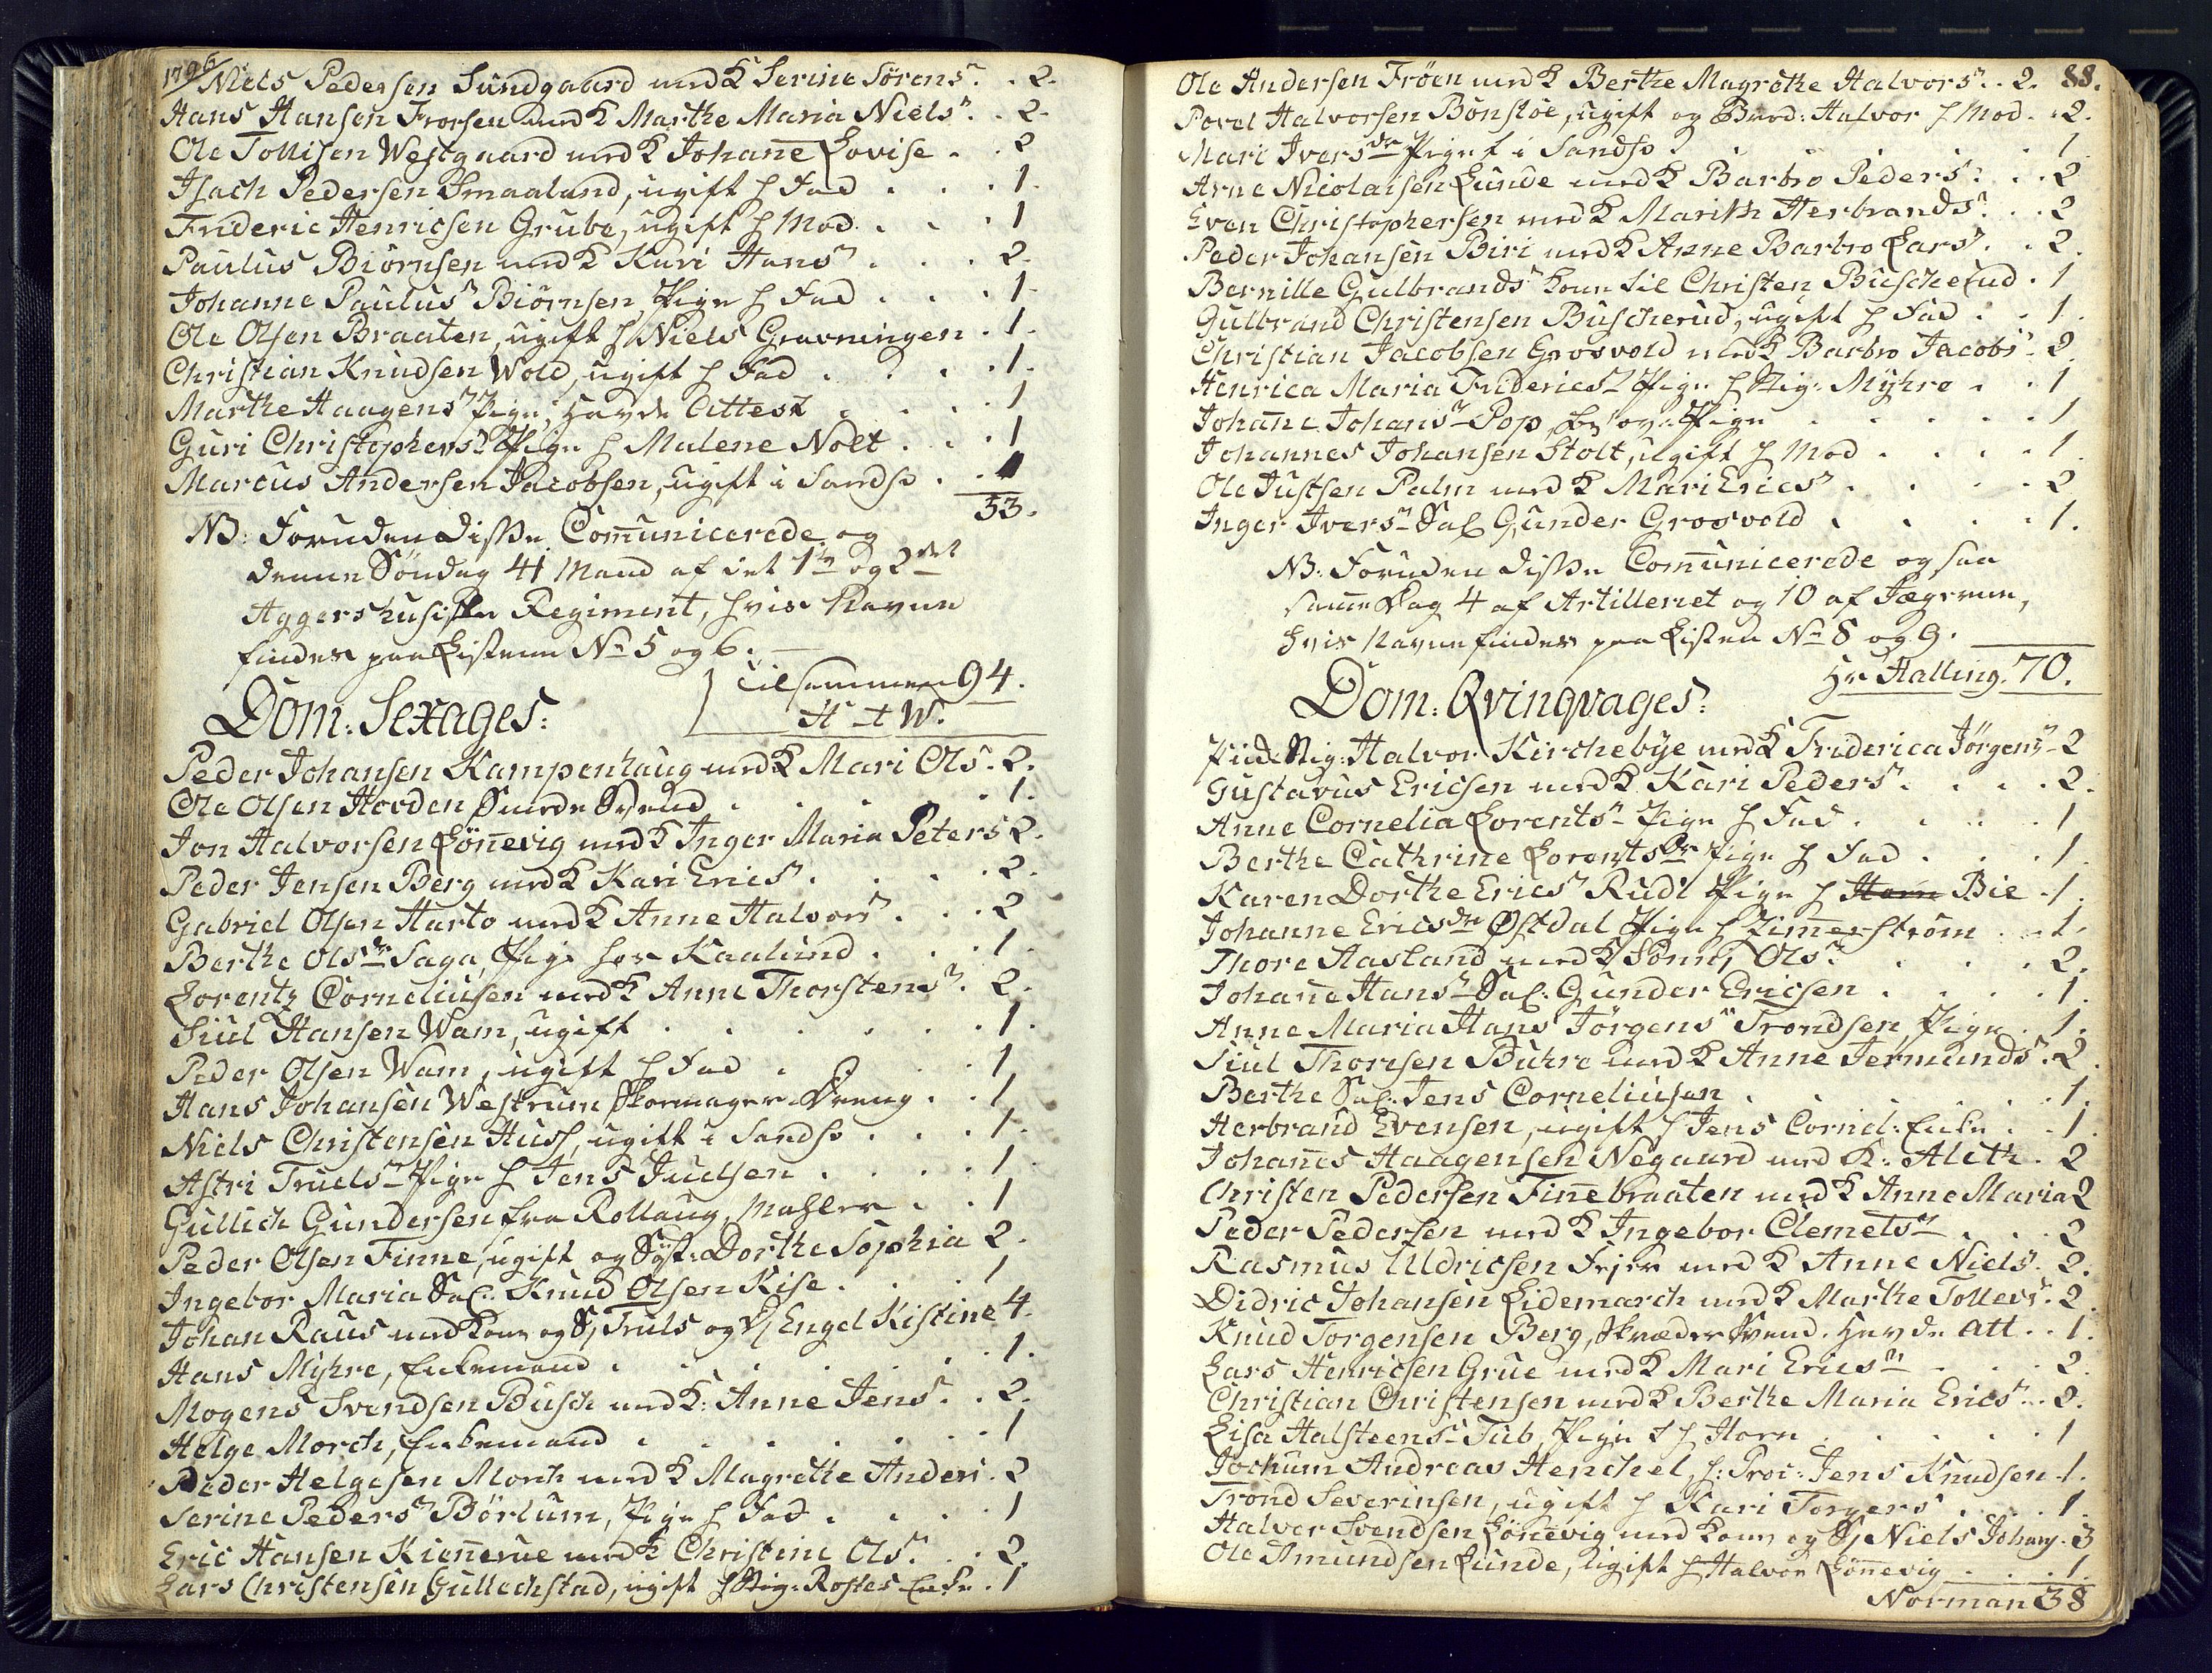 1796
Niels Pedersen Sundgaard med K Serine Sørensr. . 2.
Hans Hansen Frorsen med K Marthe Maria Nielsr. . 2.
Ole Tollisen Westgaard med K Johane Lovise . . 2
Isach Pedersen Smaaland, ugift h Fad . . . 1.
Frideric Henricsen Grube, ugift h Mod. . . . 1
Paulus Biørnsen med K Kari Hansr . . . 2.
Johanne Paulusr Biørnsen Pige h Fad . . . 1.
Ole Olsen Braaten, ugift h Niels Gravningen . 1.
Christian Knudsen Wold, ugift h Fad . . . . 1.
Marthe Haagensr Pige, havde Attest . . . . 1
Guri Christophersr Pige h Malene Nolt . . . 1
Marcus Andersen Jacobsen, ugift i Sandsø . . 1
53.
NB: Foruden disse Comunicerede og
denne Søndag 41 Mand af det 1te og 2det
Aggershusiske Regiment, hvis Navne
findes paa Listerne No 5 og 6. —
tilsammen 94.
H + W.
Dom: Sexages:
Peder Johansen Kampenhaug med K Mari Ols. 2.
Ole Olsen Hovden Smede Svend . . . . 1.
Jon Halvorsen Lønevig med K Inger Maria Peters 2.
Peder Jensen Berg med K Kari Ericsr . . . . 2.
Gabriel Olsen Harto med K Anne Halvorsr . . . 2
Berthe Olsdr Saga, Pige hos Kaalund . . . 1.
Lorentz Corneliusen med K Anne Thorstensr. 2.
Siul Hansen Wam, ugift . . . . . . 1.
Peder Olsen Wam, ugift h Fad . . . . 1
Hans Johansen Westrum Skomager Dreng . . 1
Niels Christensen Huss, ugift i Sandsø . . . 1.
Astri Truelsr Pige h Jens Juelsen . . . . 1
Gullich Gundersen fra Rollaug, Mahler . . 1
Peder Olsen Finne, ugift og Syst: Dorthe Sophia 2.
Ingebor Maria Sal. Knud Olsen Kise . . . . 1
Johan Raus med Kone og S, Truls og D, Engel Kistine 4.
Hans Myhre, Enkemand . . . . . . 1.
Mogens Svendsen Busch med K: Anne Jensr. . 2.
Helge Morch, Enkemand . . . . . . 1
Peder Helgesen Morch med K Magrethe Anders. 2
Serine Pedersr Børlum, Pige h Fad . . . . 1
Eric Hansen Kienerue med K Christine Olsr. . . 2.
Lars Christensen Gullechstad, ugift h Sig: Rostes Enke . 1
88.
Ole Andersen Frøen med K Berthe Magrethe Halvorsr. . 2.
Povel Halvorsen Bonsløe, ugift og Brod: Halvor h Mod. . 2.
Mari Iversdr Pige i Sandsø . . . . . . 1
Arne Nicolaisen Lunde med K Barbro Pedersr. . . 2
Even Christophersen med K Marith Herbrandsr. . . 2
Peder Johansen Biri med K Anne Barbro Larsr. . 2.
Bernille Gulbrandsr Kone til Christen Buscherud . 1
Gulbrand Christensen Buscherud, ugift h Fad . . 1.
Christian Jacobsen Grosvold med K Barbro Jacobsr. 2.
Henrica Maria Fridericsr Pige h Sig: Myhre . . 1
Johane Johansr Pop, Pige . . . . . 1
Johannes Johansen Stolt, ugift h Mod . . . . 1.
Ole Justsen Palm med K Mari Ericsr . . . . 2
Inger Iversr Sal Gunder Grosvold . . . . 1.
NB: Foruden disse Comunicerede ogsaa
samme Dag 4 af Artilleriet og 10 af Jægerne,
hvis Navne findes paa Listen No 8 og 9.
Hr Halling. 70.
Dom: Qvinqvages:
Halvor Kirchebye med K Friderica Jørgensr 2
Gustavus Ericsen med K Kari Pedersr . . . . 2.
Anne Cornelia Lorentsr Pige h Fad . . . . 1
Berthe Cathrine Lorentsdr Pige h Fad . . . 1.
Karen Dorthe Ericsr Rudi Pige h Horn Bie . 1.
Johanne Ericsdr Østdal Pige h Zimerstrøm . . 1.
Thore Aasland med K Sønni Olsr . . . . 2.
Johane Hansr Sal: Gunder Ericsen . . . . 1.
Anne Maria Hans Jørgensr Trondsen, Pige . 1.
Siul Thorsen Buhre med K Anne Jermundsr. 2
Berthe Sal: Jens Corneliusen . . . . . 1.
Herbrand Evensen, ugift h Jens Cornel: Enke . . 1.
Johanes Haagensen Negaard med K: Aleth . 2
Christen Pedersen Finebraaten med K Anne Maria 2
Peder Pedersen med K Ingebor Clemetsr . . . 2
Rasmus Uldricsen Fejer med K Anne Niels. 2.
Didric Johansen Lidemarch med K Marthe Tollevs. 2.
Knud Torgensen Berg, Skræder Svend. havde Att. . 1.
Lars Henricsen Grue med K Mari Ericsr . . . 2.
Christian Christensen med K Berthe Maria Ericsr . 2.
Lisa Halsteensr Tub, Pige h Horn . . . . 1
Jochum Andreas Henchel, h: Proc: Jens Knudsen . 1.
Trond Severinsen, ugift h Kari Torgersr . . . . 1.
Halvor Svendsen Lønevig med Kone og S, Niels Johans. 3
Ole Amundsen Lunde, ugift h Halvor Lønevig . . . . 1.
Norman 38